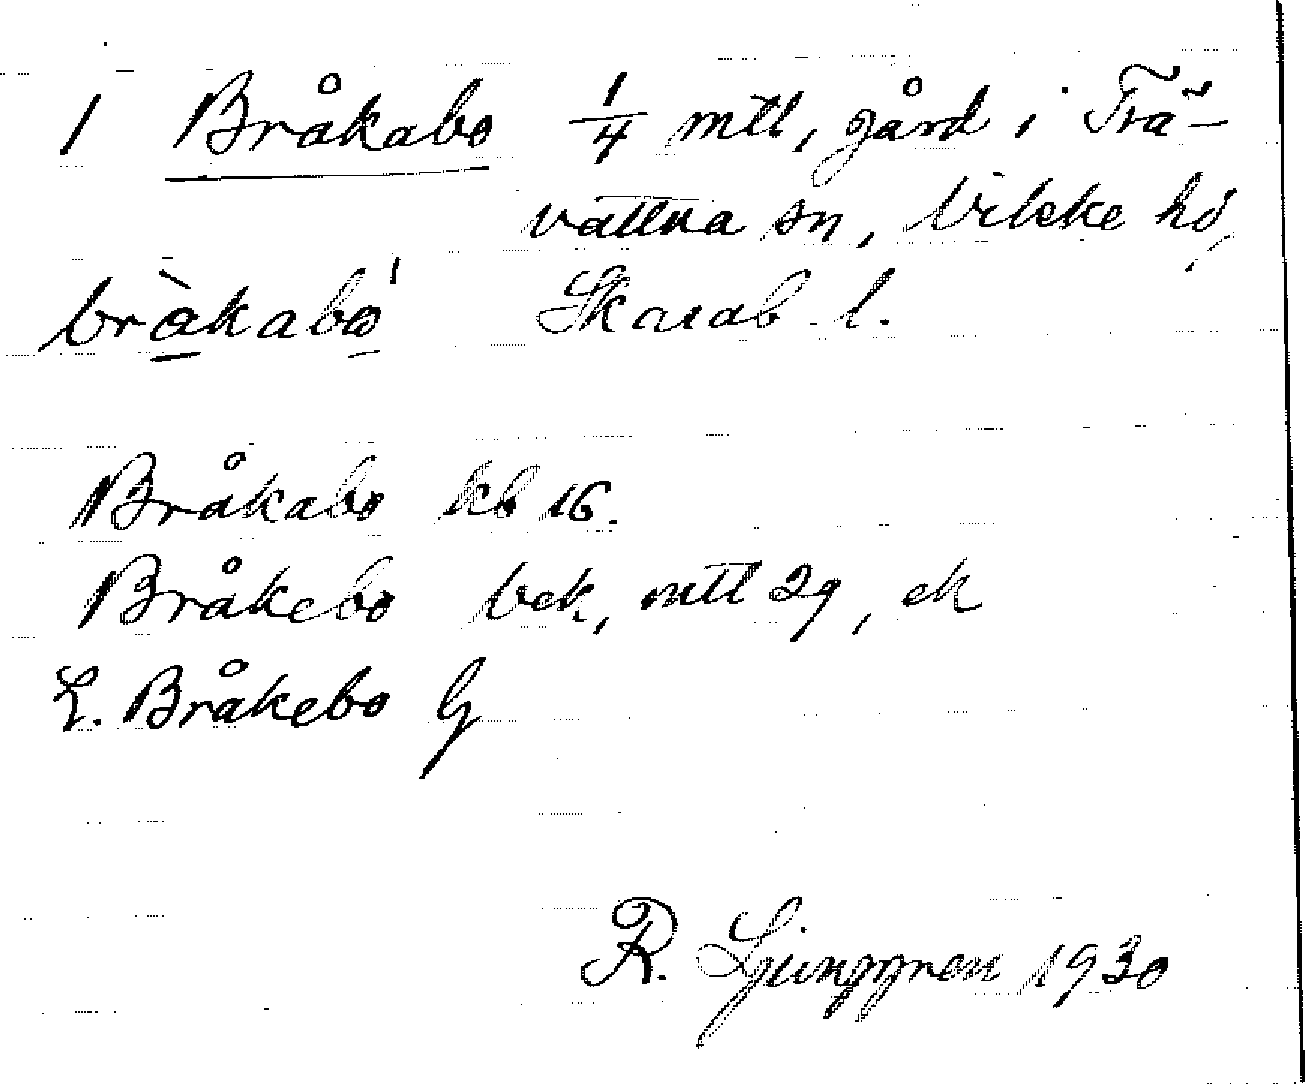 1 Bråkabo 1/4 mtl, gård i Trä-
vattna sn, Vilske hd,
bràkabo̲ˈ Skarab. l.
Bråkabo kb 16.
Bråkebo bek, mtl 29, ek
L. Bråkebo G
R. Ljunggren 1930